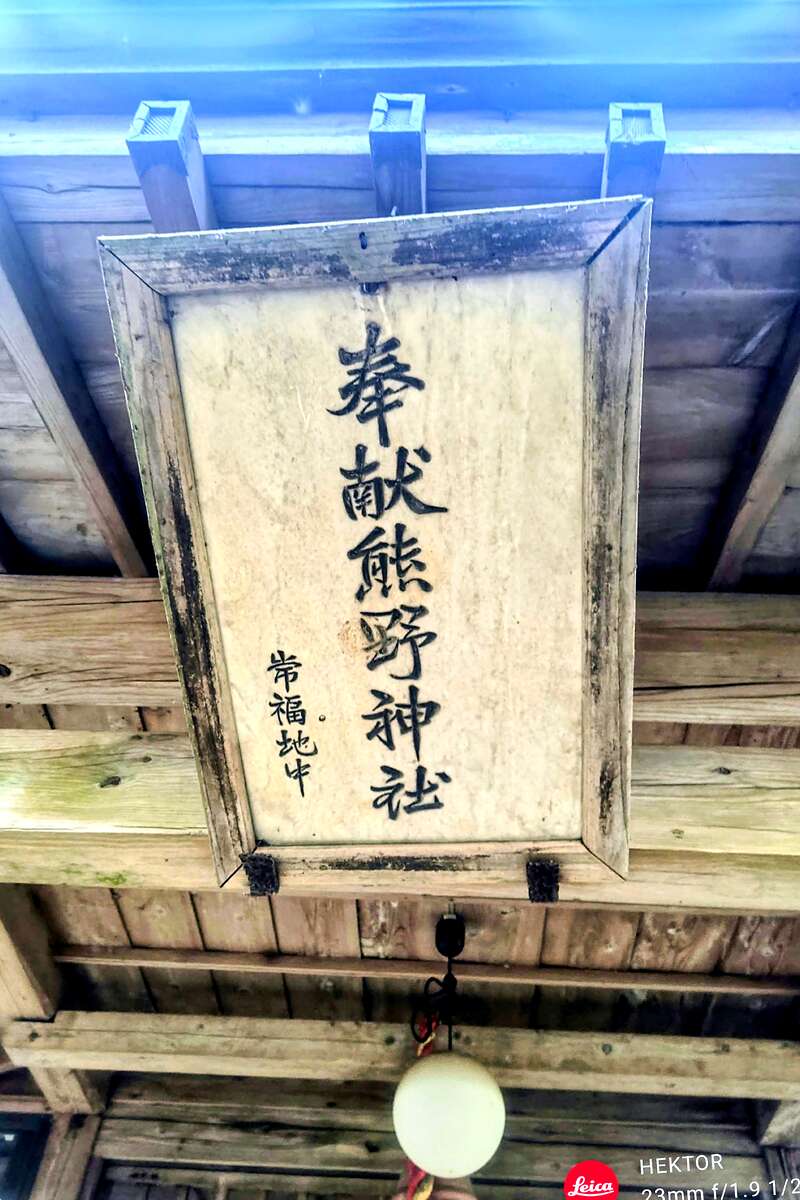 奉献熊野神社
常福地中
Leica
HEKTOR
23mm f/1.9 1/2